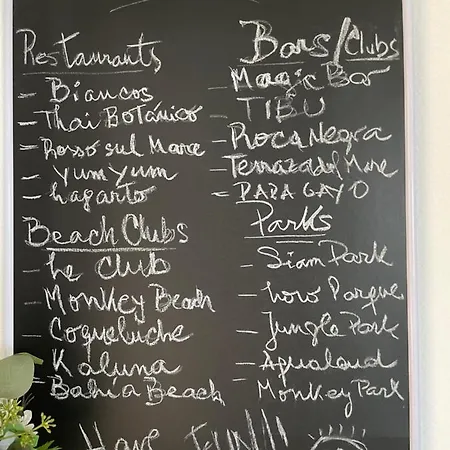 Restaurants
- Biancos
- Thai Botánico
- Rosso sul Mare
- YumYum
- Lagarto
Beach Clubs
- Le Club
- Monkey Beach
- Coqueluche
- Kaluna
- Bahía Beach
Bars/Clubs
- Magic Bar
- TIBU
- Roca Negra
- Terraza del Mare
- PAPAGAYO
Parks
- Siam Park
- Loro Parque
- Jungle Park
- Aqualand
- Monkey Park
Have FUN!!